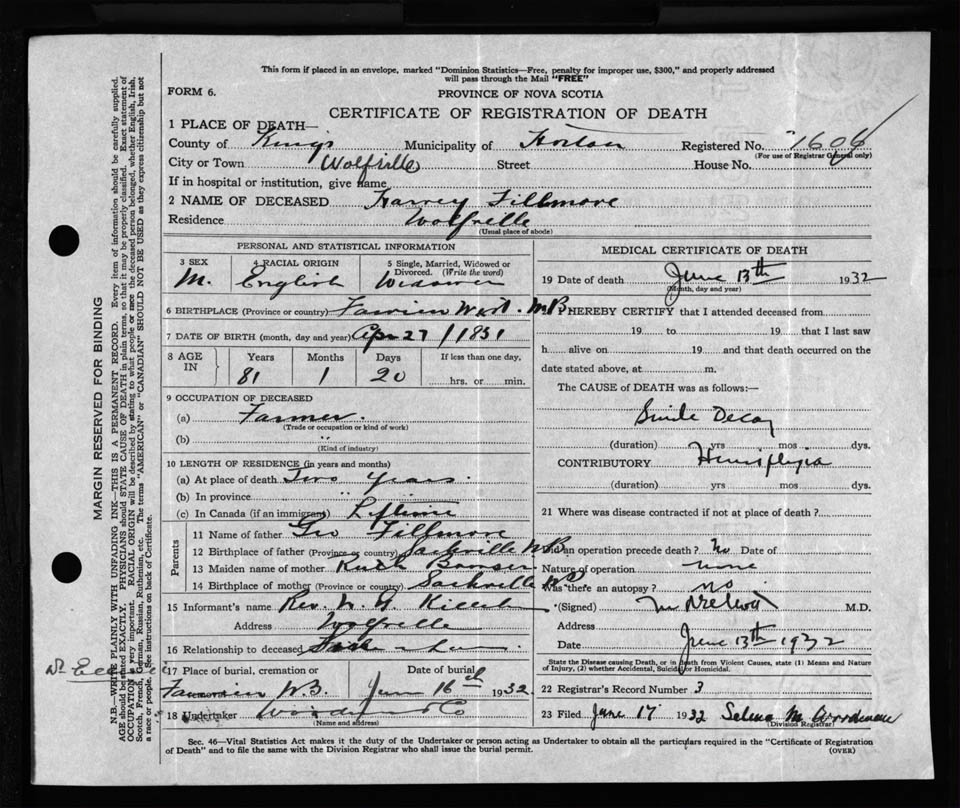 This form if placed in an envelope, marked "Dominion Statistics—Free, penalty for improper use, $300," and properly addressed
will pass through the Mail "FREE"
FORM 6.
PROVINCE OF NOVA SCOTIA
CERTIFICATE OF REGISTRATION OF DEATH
1 PLACE OF DEATH—
County of Kings Municipality of Horton Registered No. 1606
(For use of Registrar General only)
City or Town Wolfville Street House No.
If in hospital or institution, give name
2 NAME OF DECEASED Harvey Fillmore
Residence Wolfville
(Usual place of abode)
PERSONAL AND STATISTICAL INFORMATION
3 SEX 4 RACIAL ORIGIN 5 Single, Married, Widowed or Divorced. (Write the word)
M. English Widower
6 BIRTHPLACE (Province or country) West. N.B.
7 DATE OF BIRTH (month, day and year) Apr 27 / 1851
8 AGE IN Years Months Days If less than one day,
81 1 20 hrs. or min.
9 OCCUPATION OF DECEASED
(a) Farmer.
(Trade or occupation or kind of work)
(b) "
(Kind of industry)
10 LENGTH OF RESIDENCE (in years and months)
(a) At place of death Two years.
(b) In province " "
(c) In Canada (if an immigrant) Lifetime
Parents
11 Name of father Geo Fillmore
12 Birthplace of father (Province or country) Sackville N.B.
13 Maiden name of mother Ruth
14 Birthplace of mother (Province or country) Sackville N.B.
15 Informant's name Rev.
Address Wolfville
16 Relationship to deceased
17 Place of burial, cremation or Date of burial
N.B. June 16th 1932
18 Undertaker Co
(Name and address)
MEDICAL CERTIFICATE OF DEATH
19 Date of death June 13th 1932
(Month, day and year)
I HEREBY CERTIFY that I attended deceased from
19 to 19 that I last saw
h alive on 19 and that death occurred on the
date stated above, at m.
The CAUSE of DEATH was as follows:—
Senile Decay
(duration) yrs mos dys.
CONTRIBUTORY Hemiplegia
(duration) yrs mos dys.
21 Where was disease contracted if not at place of death?
Did an operation precede death? No Date of
Nature of operation none
Was there an autopsy? no
(Signed) M.D.
Address
Date June 13th 1932
State the Disease causing Death, or in death from Violent Causes, state (1) Means and Nature
of Injury, (2) whether Accidental, Suicidal or Homicidal.
22 Registrar's Record Number 3
23 Filed June 17 1932 Selma M Woodman
(Division Registrar)
Sec. 46—Vital Statistics Act makes it the duty of the Undertaker or person acting as Undertaker to obtain all the particulars required in the "Certificate of Registration
of Death" and to file the same with the Division Registrar who shall issue the burial permit.
(OVER)
MARGIN RESERVED FOR BINDING
N.B.—WRITE PLAINLY WITH UNFADING INK—THIS IS A PERMANENT RECORD. Every item of information should be carefully supplied.
AGE should be stated EXACTLY. PHYSICIANS should STATE CAUSE OF DEATH in plain terms, so that it may be properly classified. Exact statement of
OCCUPATION is very important. RACIAL ORIGIN will be described by stating to what people or race the deceased person belonged, whether English, Irish,
Scotch, French, German, Russian, Ruthenian, etc. The terms "AMERICAN" or "CANADIAN" SHOULD NOT BE USED as they express citizenship but not
a race or people. See instructions on back of Certificate.